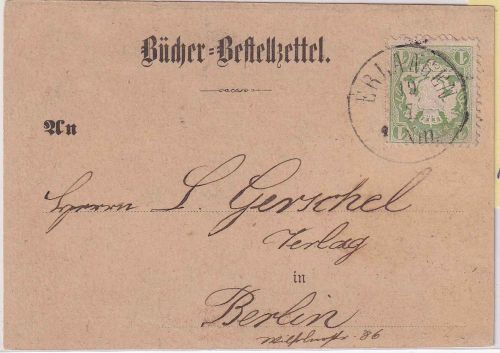 Bücher-Bestellzettel.
1
ERLANGEN
An
Herrn L. Gerschel
Verlag
in
Berlin
Wilhelmstr. 86